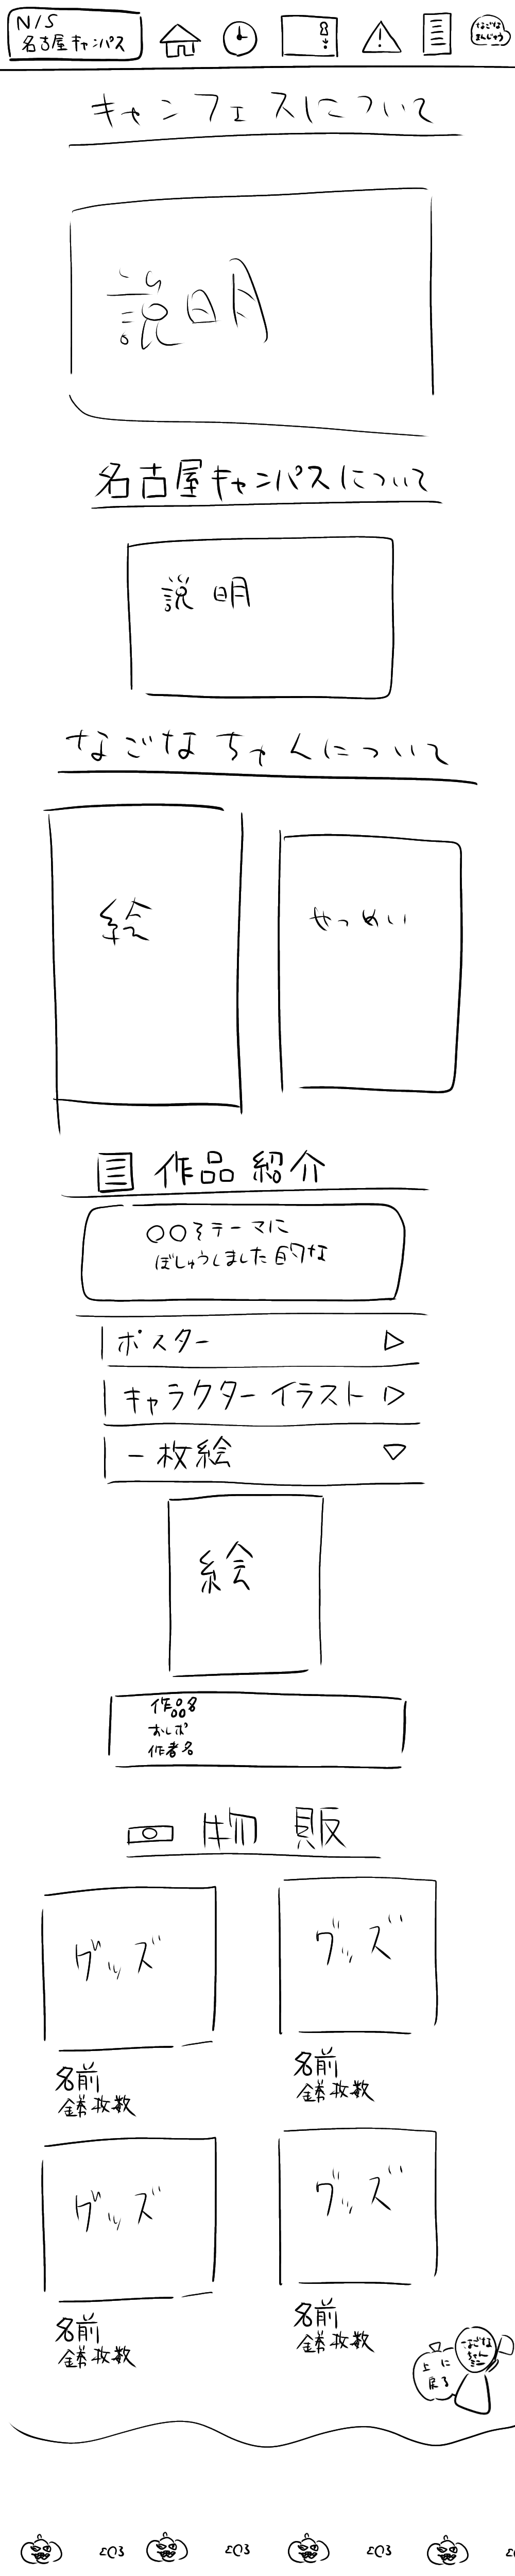 N/S
名古屋キャンパス
なごなまんじゅう
キャンフェスについて
説明
名古屋キャンパスについて
説明
なごなちゃんについて
絵
せつめい
作品紹介
〇〇をテーマに
ぼしゅうしました的な
ポスター
キャラクターイラスト
一枚絵
絵
作品名
おしポ
作者名
物販
グッズ
グッズ
名前
名前
グッズ
グッズ
名前
名前
なごなちゃん
上に戻る